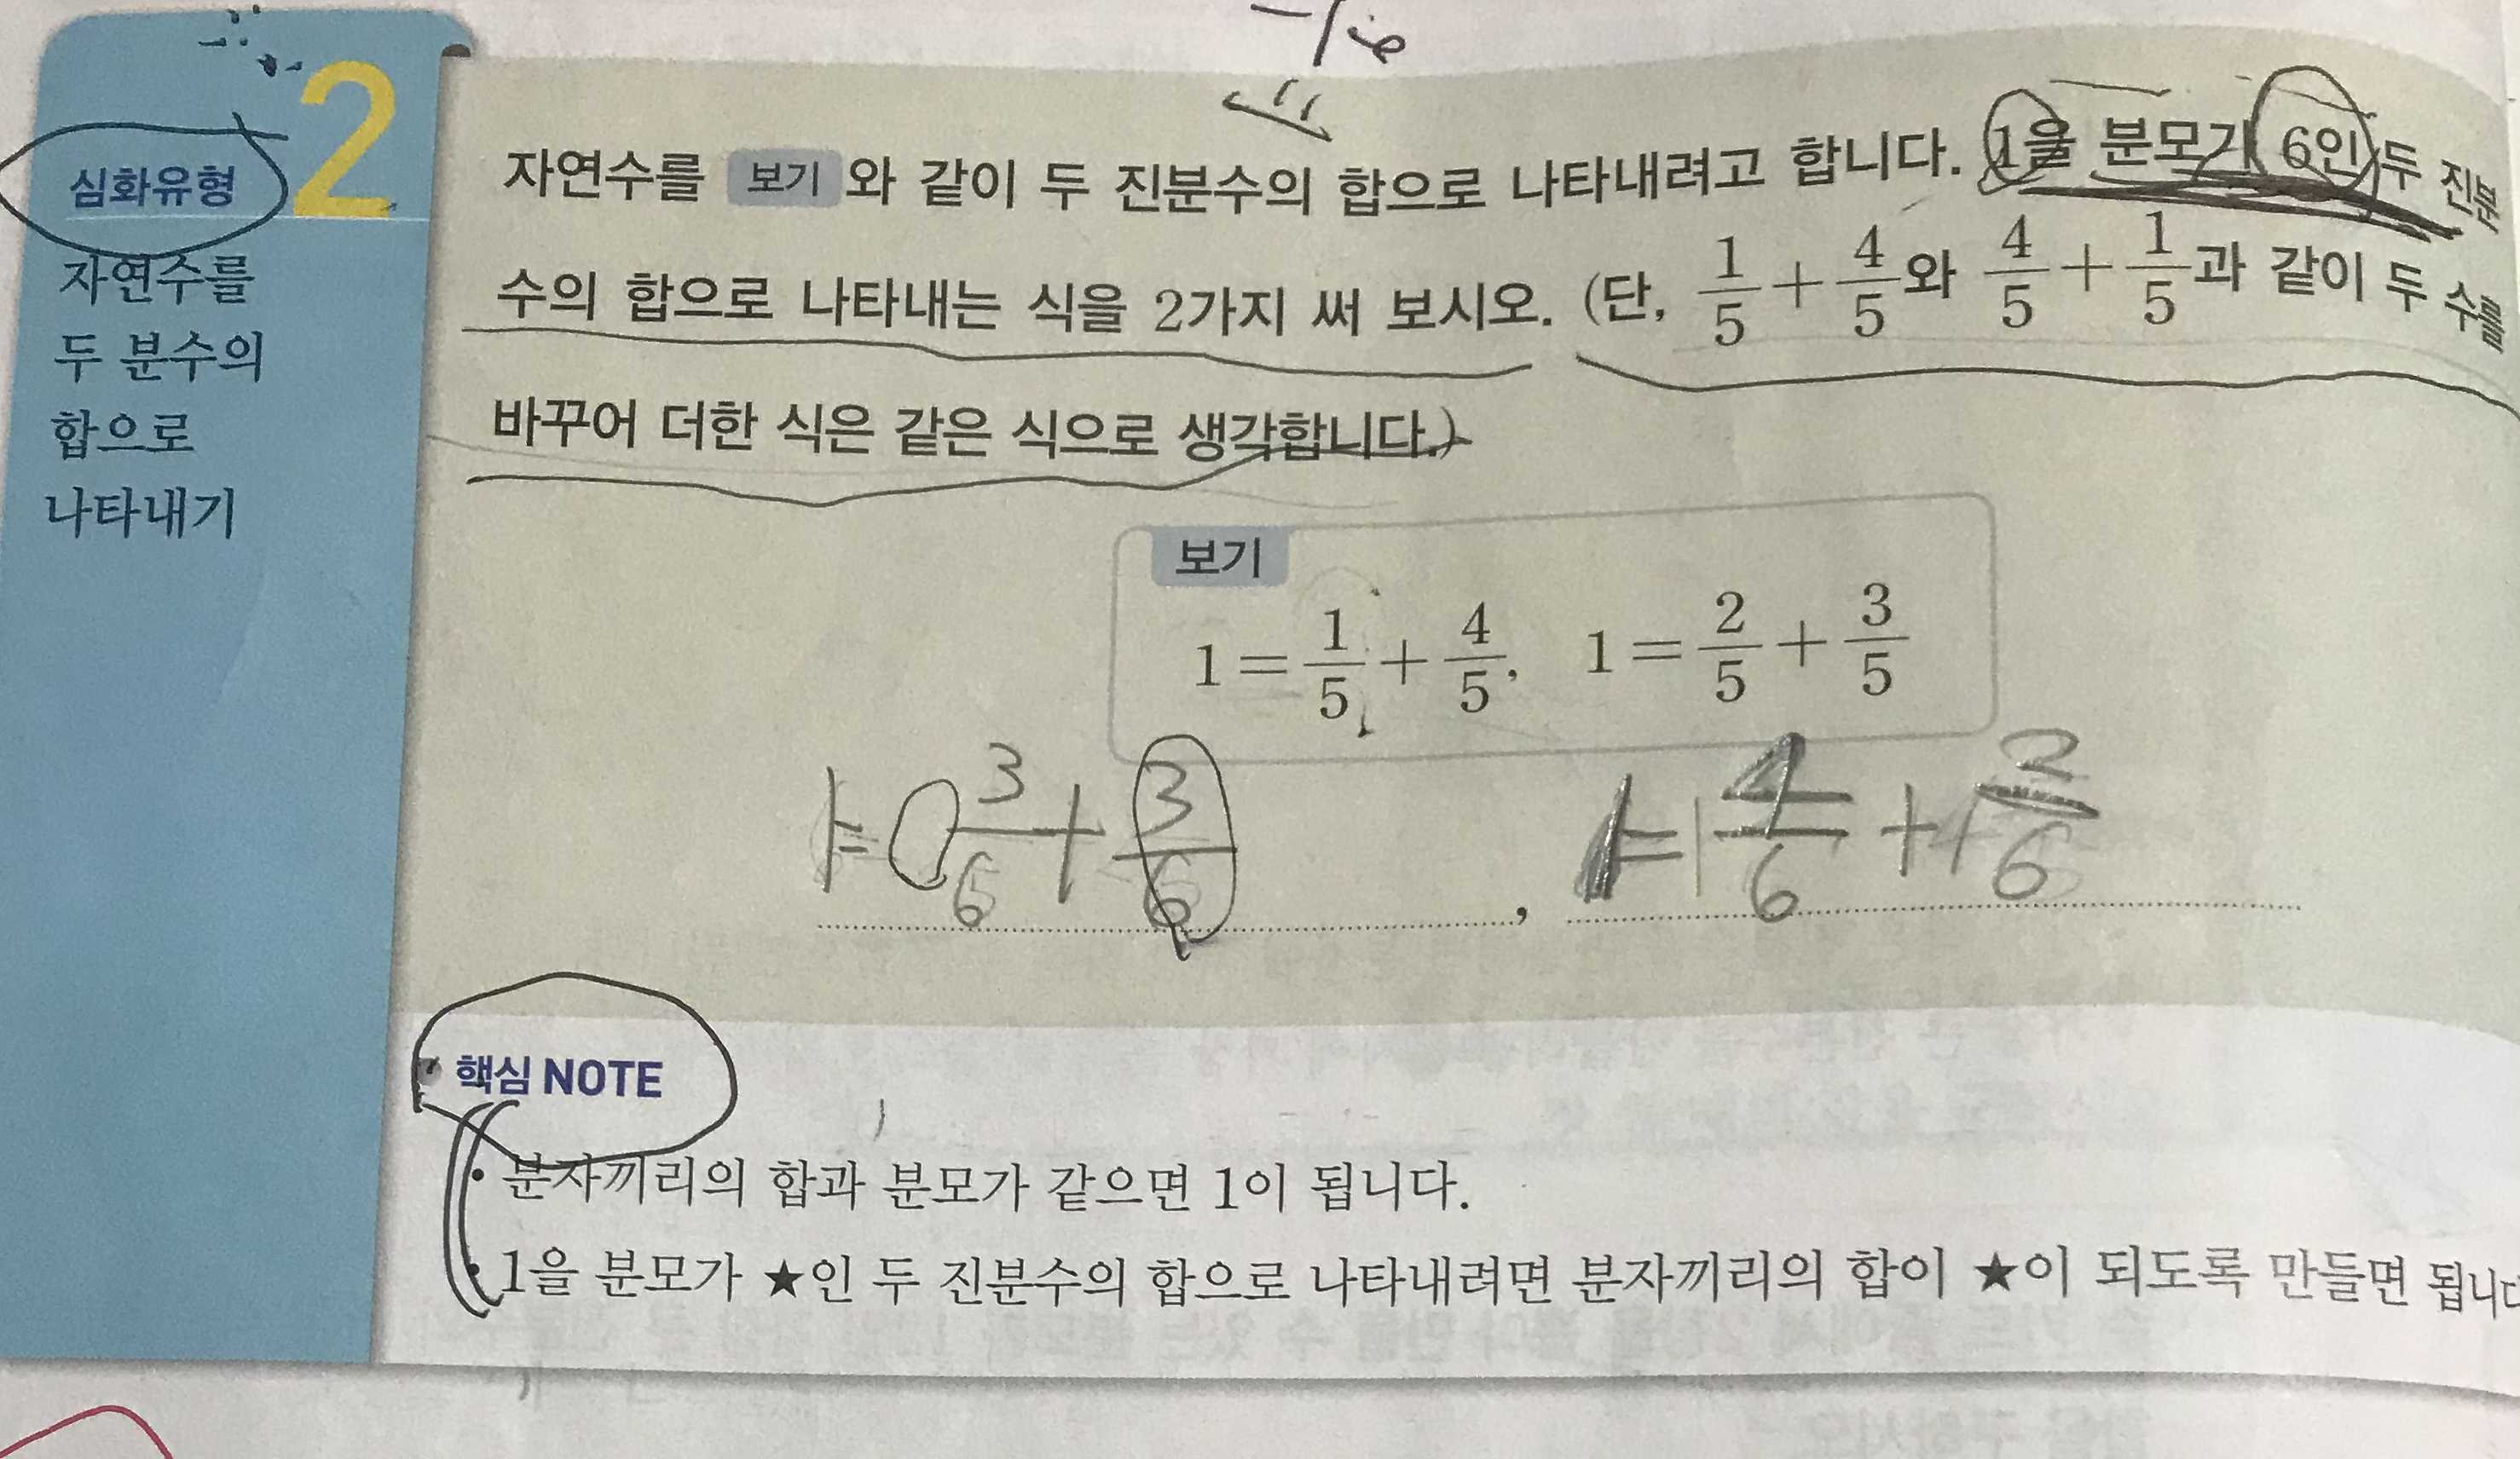 2
심화유형
자연수를
두 분수의
합으로
나타내기
자연수를 보기 와 같이 두 진분수의 합으로 나타내려고 합니다. 1을 분모가 6인 두 진분
수의 합으로 나타내는 식을 2가지 써 보시오. (단, 1/5 + 4/5와 4/5 + 1/5과 같이 두 수를
바꾸어 더한 식은 같은 식으로 생각합니다.)
보기
1 = 1/5 + 4/5, 1 = 2/5 + 3/5
1 = 3/6 + 3/6 , 1 = 4/6 + 2/6
핵심 NOTE
• 분자끼리의 합과 분모가 같으면 1이 됩니다.
• 1을 분모가 ★인 두 진분수의 합으로 나타내려면 분자끼리의 합이 ★이 되도록 만들면 됩니다